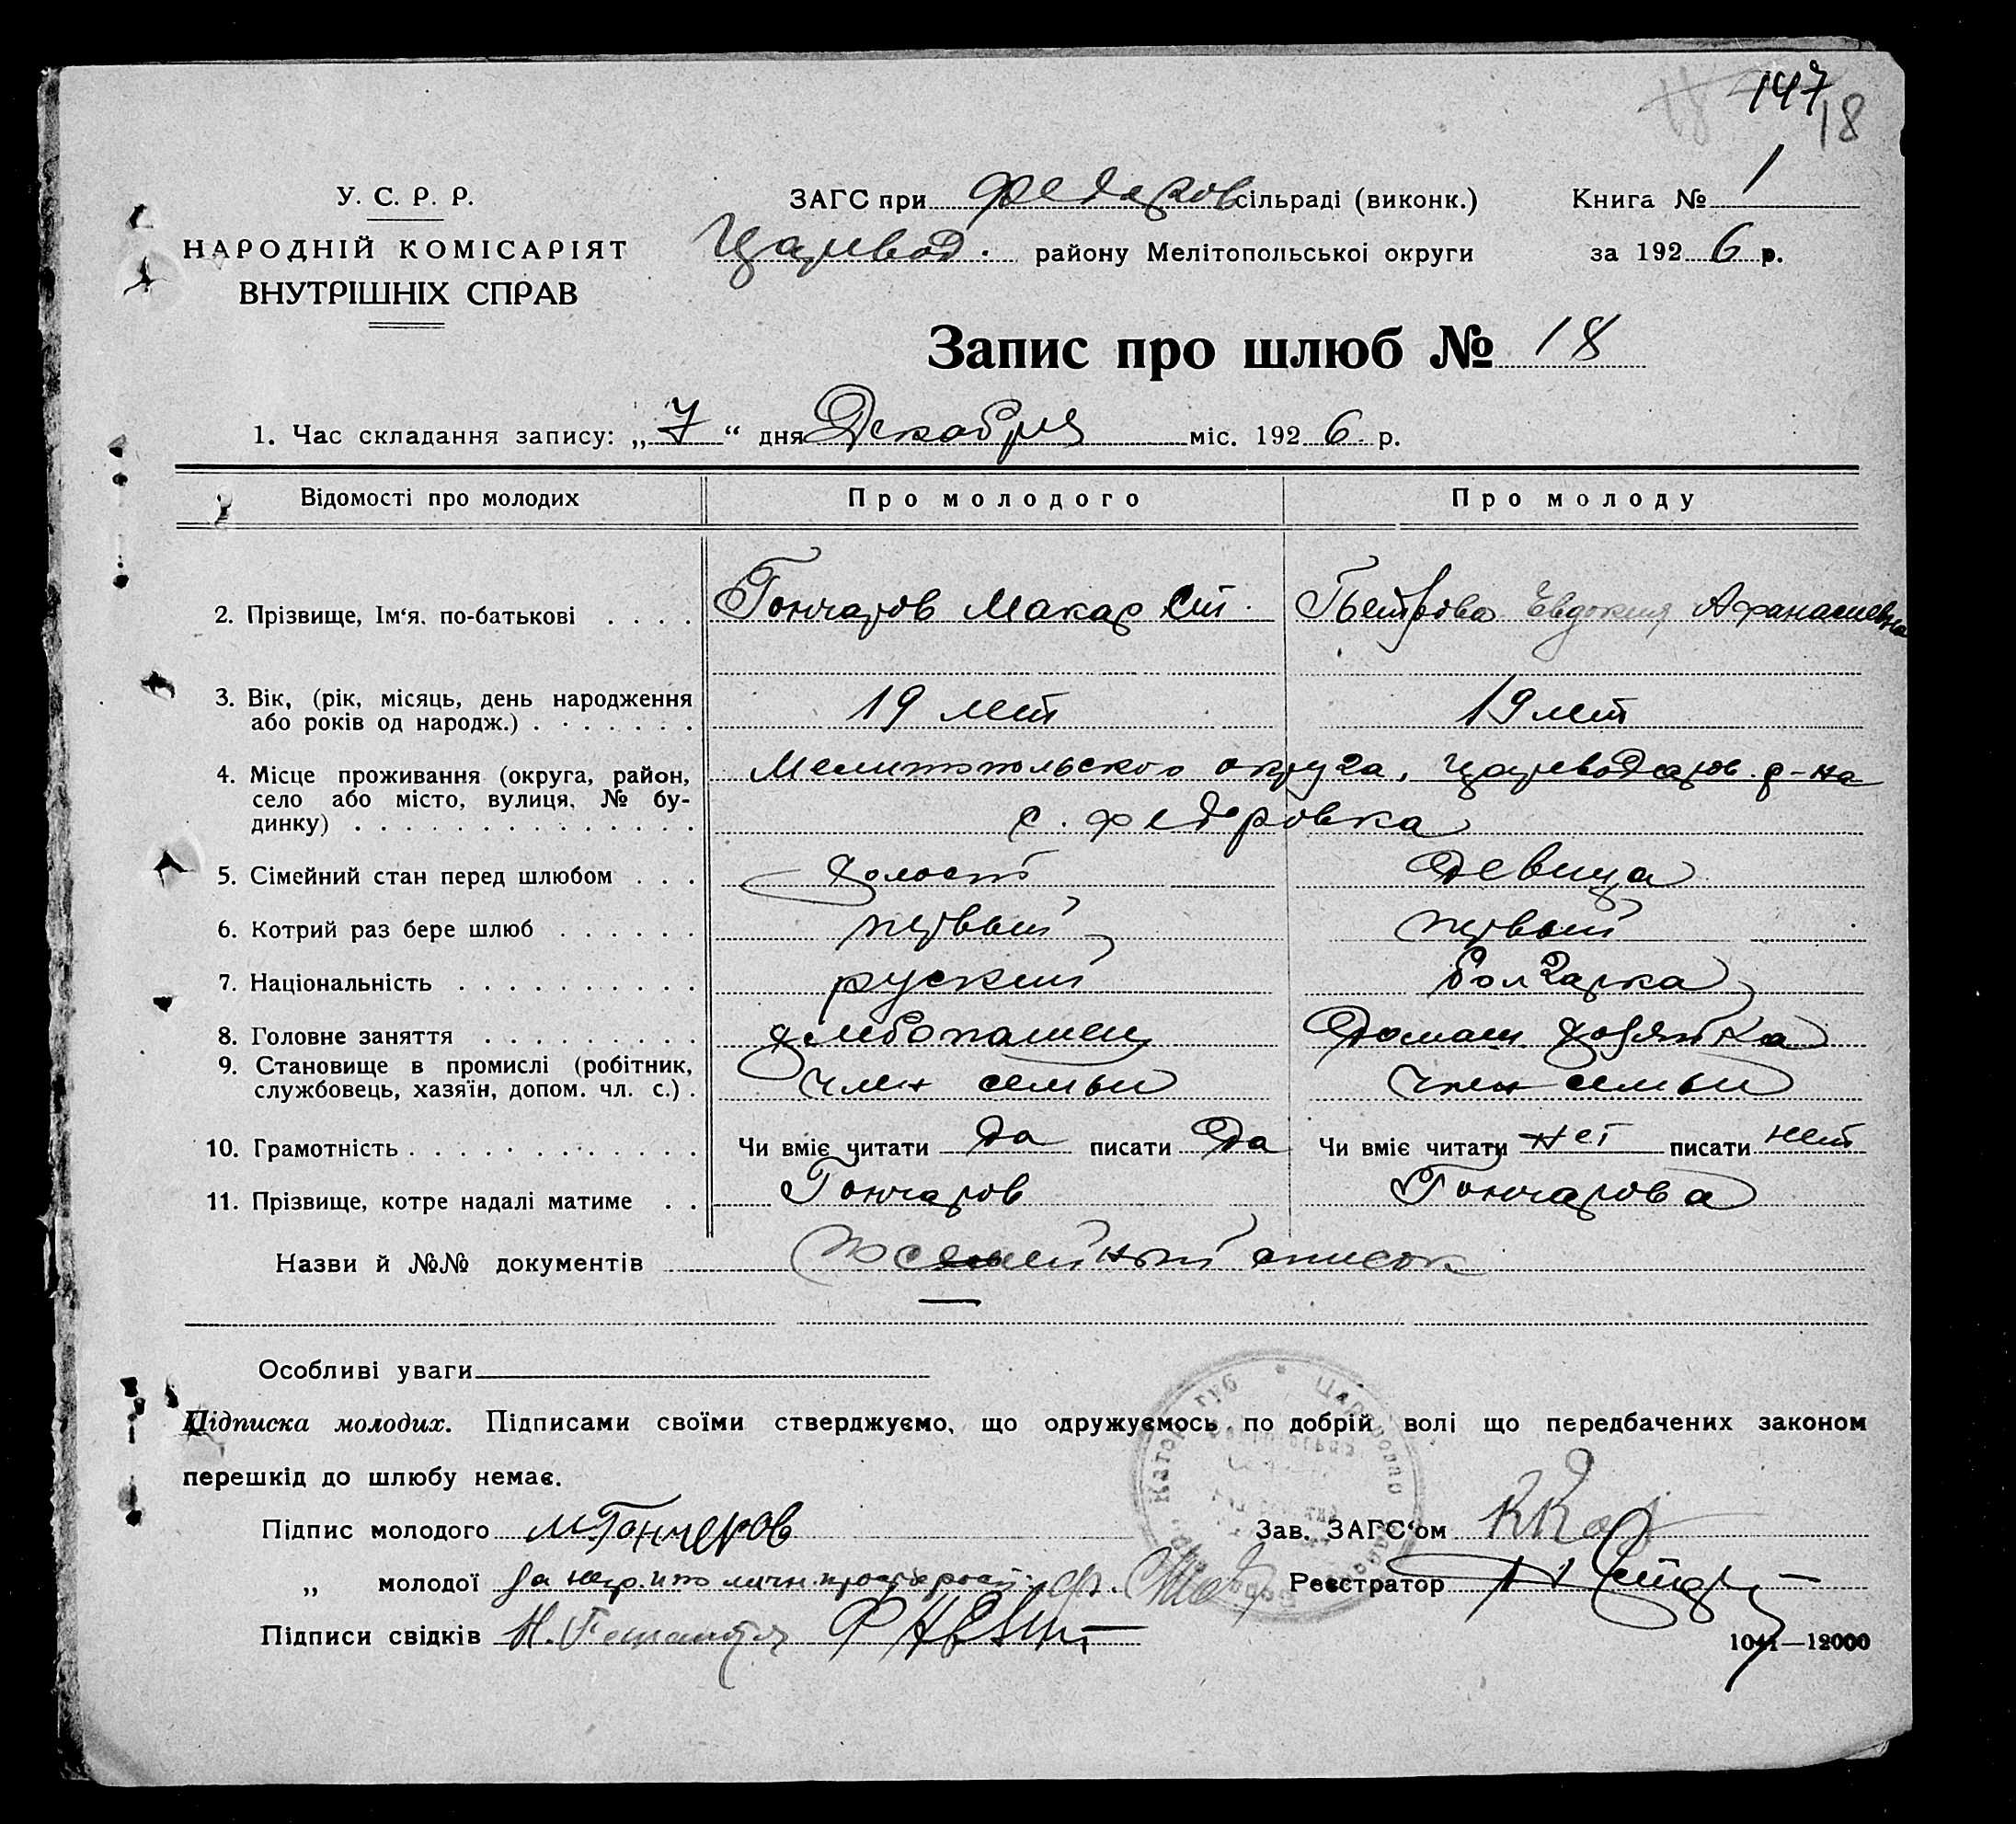 147
18
У. С. Р. Р.
НАРОДНІЙ КОМІСАРІЯТ
ВНУТРІШНІХ СПРАВ
ЗАГС при Федоров сільраді (виконк.) Книга № 1
Царевод. району Мелітопольської округи за 1926 р.
Запис про шлюб № 18
1. Час складання запису: „7“ дня Декабря міс. 1926 р.
Відомості про молодих Про молодого Про молоду
2. Прізвище, Ім‘я, по-батькові Гончаров Макар Ст. Петрова Евдокия Афанасиевна
3. Вік, (рік, місяць, день народження
або років од народж.) 19 лет 19 лет
4. Місце проживання (округа, район, Мелитопольского округа, Цареводаров. р-на
село або місто, вулиця, № бу-
динку) с. Федоровка
5. Сімейний стан перед шлюбом холост девица
6. Котрий раз бере шлюб первый первый
7. Національність руский болгарка
8. Головне заняття хлебопашец Домаш хозяйка
9. Становище в промислі (робітник,
службовець, хазяїн, допом. чл. с.) член семьи член семьи
10. Грамотність Чи вміє читати да писати да Чи вміє читати нет писати нет
11. Прізвище, котре надалі матиме Гончаров Гончарова
Назви й №№ документів Посемейный список
Особливі уваги
Підписка молодих. Підписами своїми стверджуємо, що одружуємось по добрій волі що передбачених законом
перешкід до шлюбу немає.
Підпис молодого М Гончеров Зав. ЗАГС‘ом
„ молодої за негр. и по личн. просьбе росп. Реєстратор
Підписи свідків Н.
1041—12000